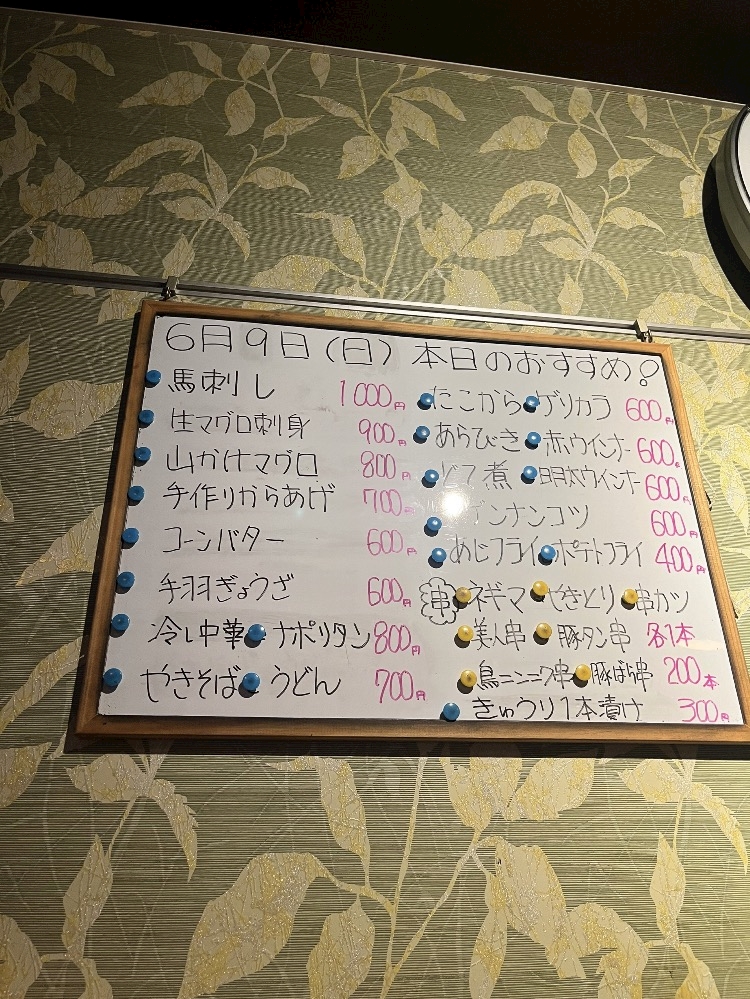 6月9日(日) 本日のおすすめ!
馬刺し 1000円
生マグロ刺身 900円
山かけマグロ 800円
手作りからあげ 700円
コーンバター 600円
手羽ぎょうざ 600円
冷し中華 ナポリタン 800円
やきそば うどん 700円
たこから ゲソカラ 600円
あらびき 赤ウインナー 600円
どて煮 明太ウインナー 600円
ゲンナンコツ 600円
あじフライ ポテトフライ 400円
串 ネギマ やきとり 串カツ
美人串 豚タン串 各1本
鳥ニンニク串 豚ばら串 200本
きゅうり1本漬け 300円